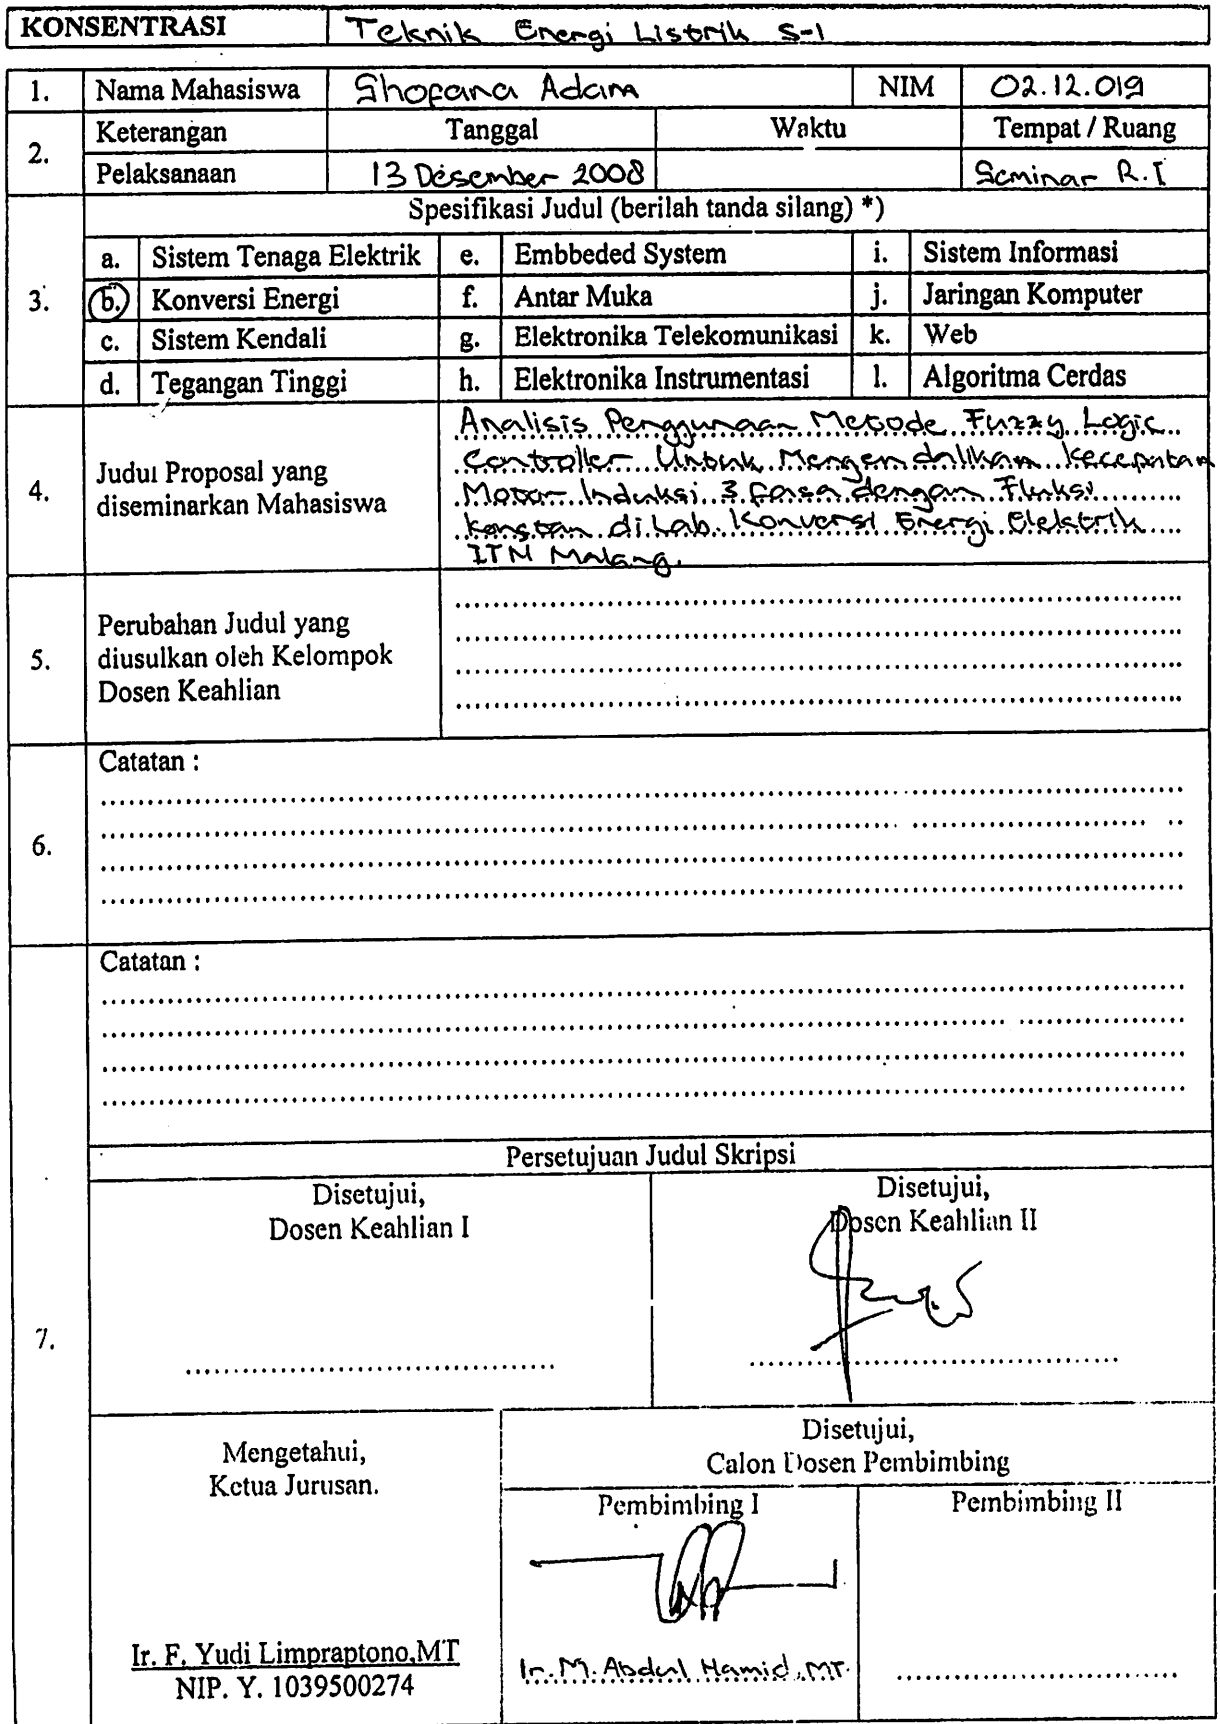 KONSENTRASI Teknik Energi Listrik S-1
1. Nama Mahasiswa Shofana Adam NIM 02.12.019
2. Keterangan Tanggal Waktu Tempat / Ruang
Pelaksanaan 13 Desember 2008 Seminar R.I
3. Spesifikasi Judul (berilah tanda silang) *)
a. Sistem Tenaga Elektrik e. Embbeded System i. Sistem Informasi
b. Konversi Energi f. Antar Muka j. Jaringan Komputer
c. Sistem Kendali g. Elektronika Telekomunikasi k. Web
d. Tegangan Tinggi h. Elektronika Instrumentasi l. Algoritma Cerdas
4. Judul Proposal yang
diseminarkan Mahasiswa
Analisis Penggunaan Metode Fuzzy Logic
Controller Untuk Mengendalikan Kecepatan
Motor Induksi 3 fasa dengan Fluksi
konstan di Lab. Konversi Energi Elektrik
ITN Malang.
5. Perubahan Judul yang
diusulkan oleh Kelompok
Dosen Keahlian
6. Catatan :
Catatan :
7. Persetujuan Judul Skripsi
Disetujui,
Dosen Keahlian I
Disetujui,
Dosen Keahlian II
Mengetahui,
Ketua Jurusan.
Ir. F. Yudi Limpraptono,MT
NIP. Y. 1039500274
Disetujui,
Calon Dosen Pembimbing
Pembimbing I Pembimbing II
Ir. M. Abdul Hamid, MT.